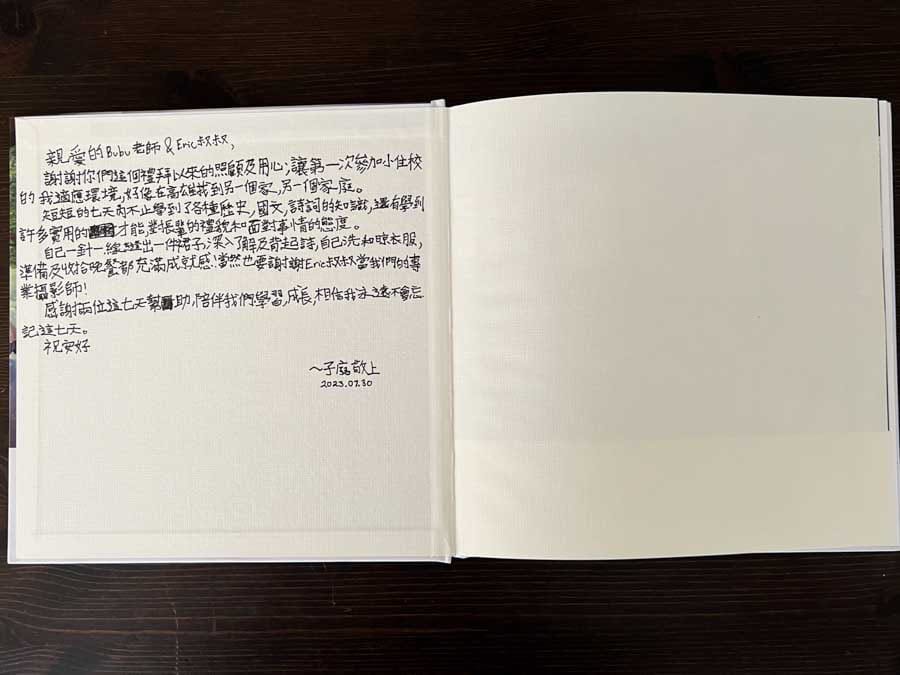 親愛的Bubu老師&Eric叔叔,
謝謝你們這個禮拜以來的照顧及用心,讓第一次參加小住校
的我適應環境,好像在高雄找到另一個家,另一個家庭。
短短的七天內不止學到了各種歷史,國文,詩詞的知識,還有學到
許多實用的才能,對長輩的禮貌和面對事情的態度。
自己一針一線縫出一件裙子,深入了解及背起詩,自己洗和晾衣服,
準備及收拾晚餐都充滿成就感!當然也要謝謝Eric叔叔當我們的專
業攝影師!
感謝兩位這七天幫助,陪伴我們學習,成長,相信我永遠不會忘
記這七天。
祝安好
~子庭敬上
2023.07.30